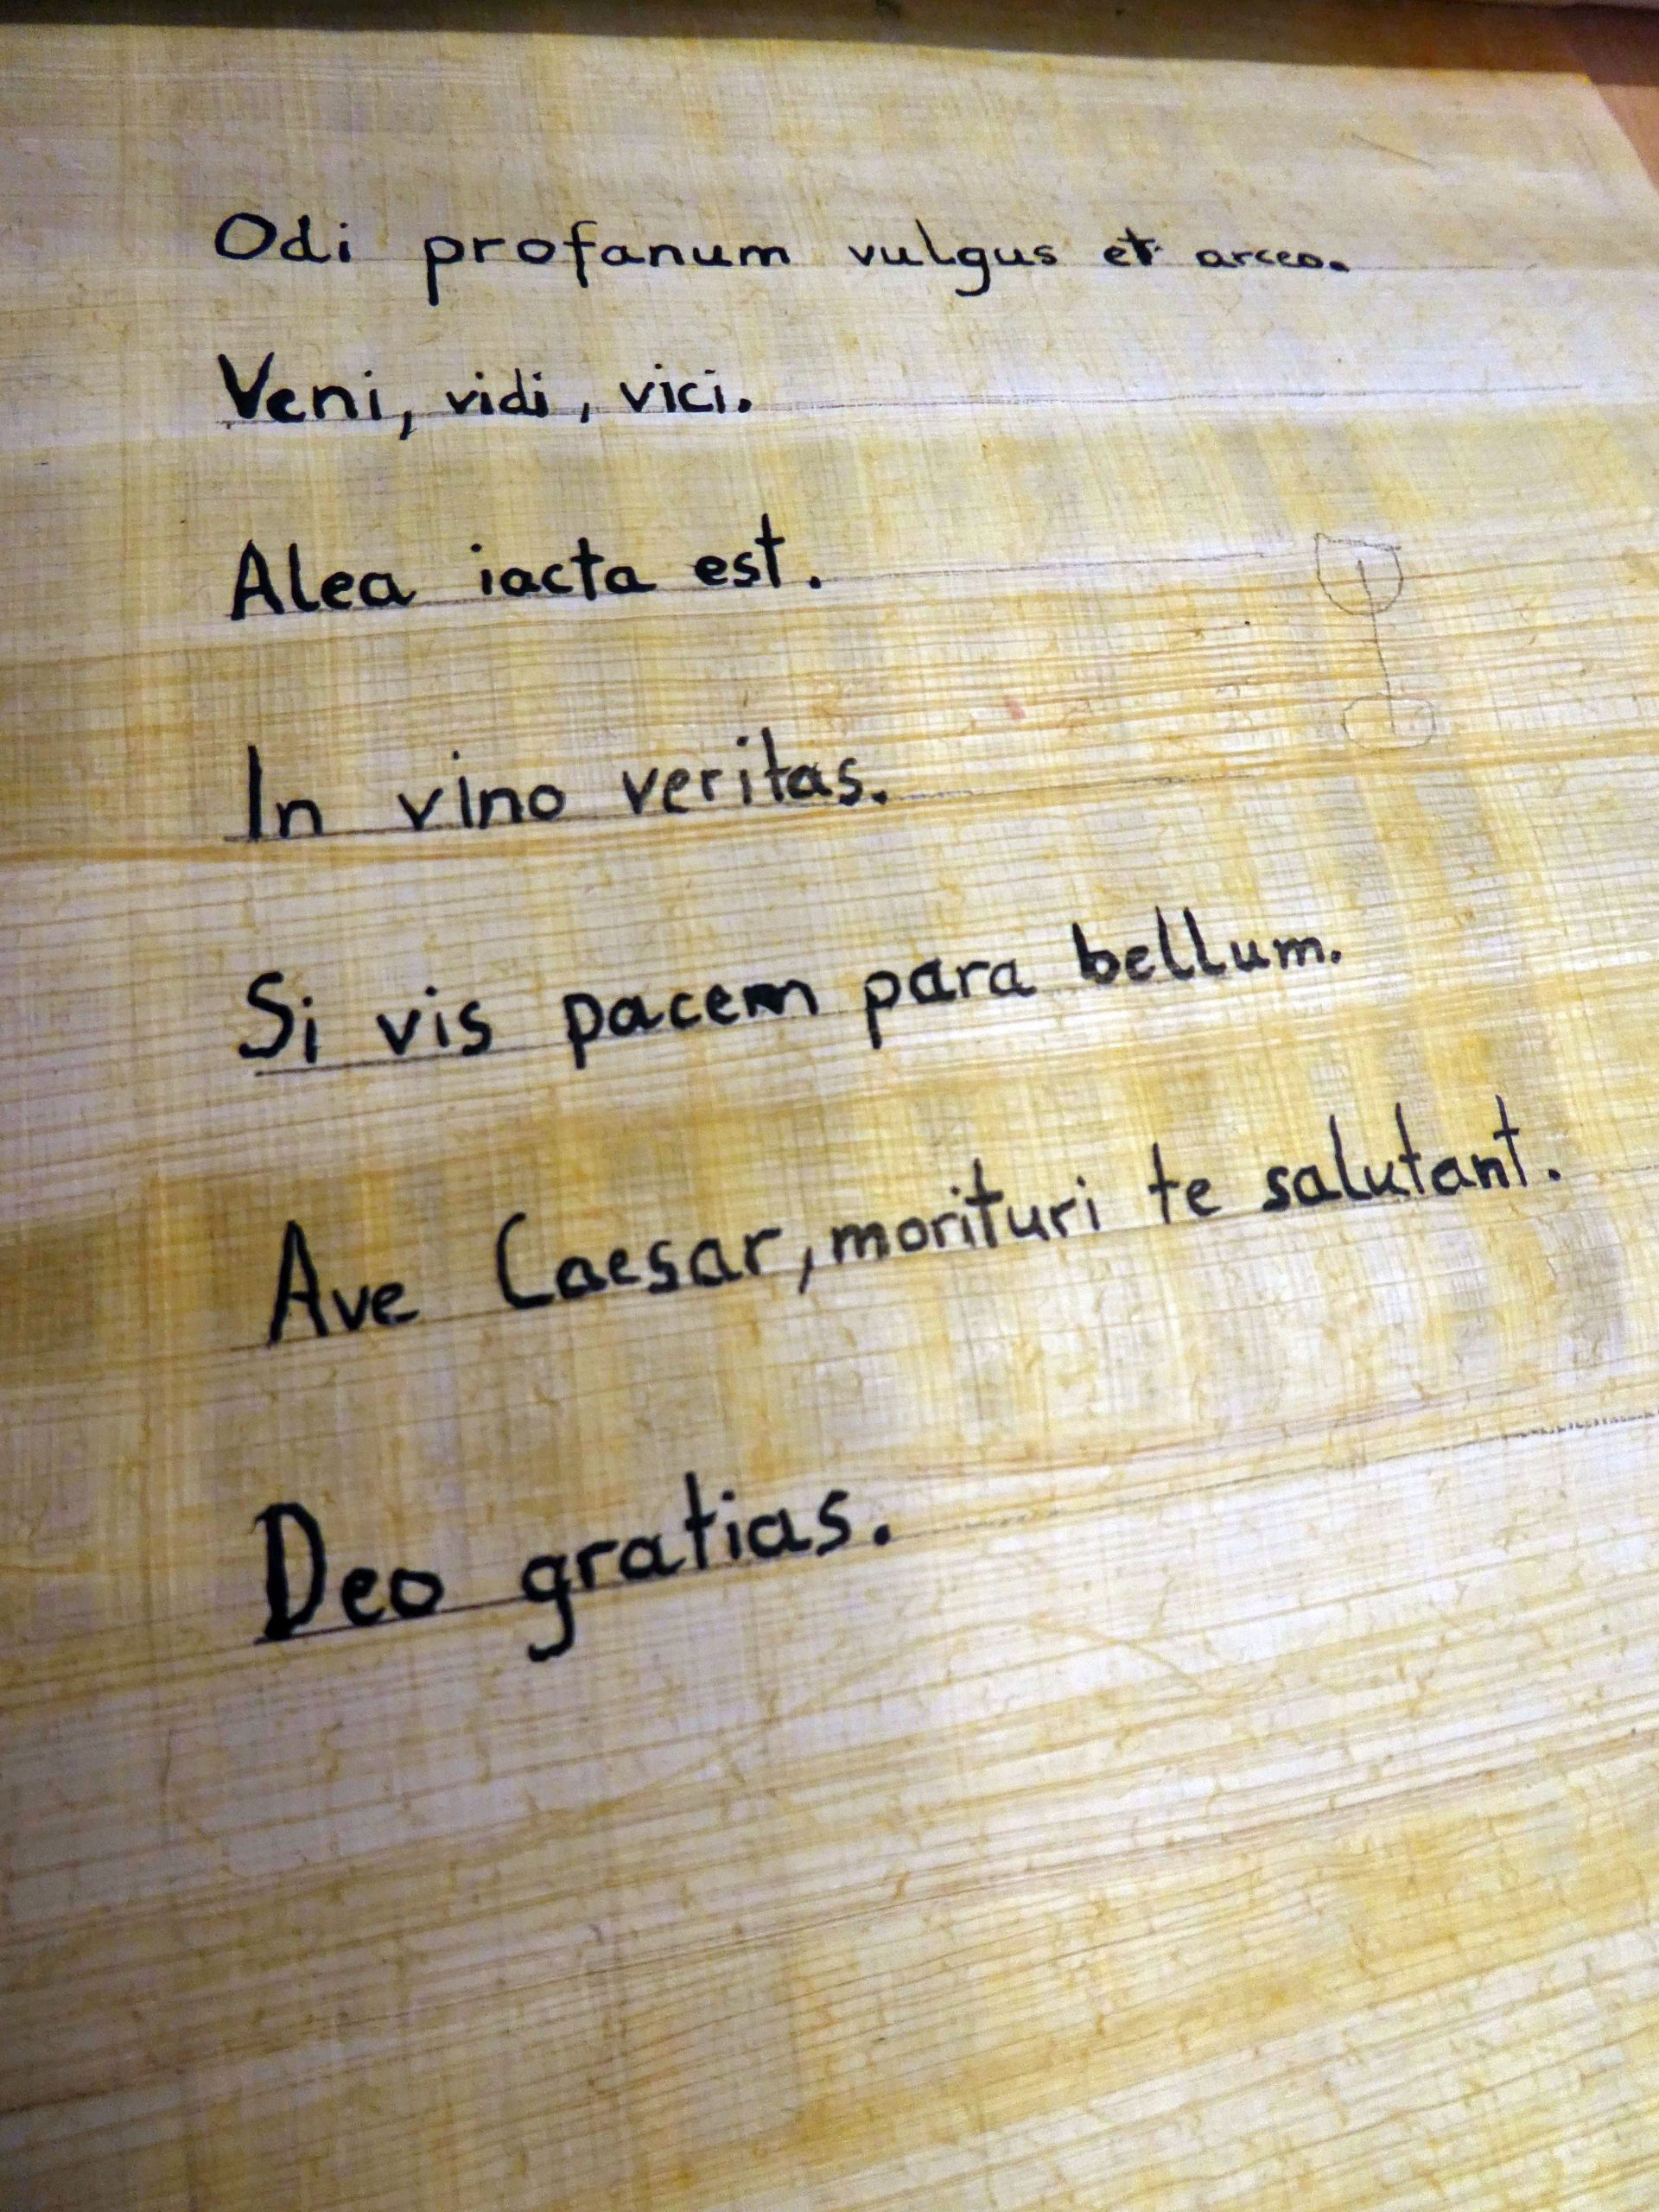 Odi profanum vulgus et arceo.
Veni, vidi, vici.
Alea iacta est.
In vino veritas.
Si vis pacem para bellum.
Ave Caesar, morituri te salutant.
Deo gratias.